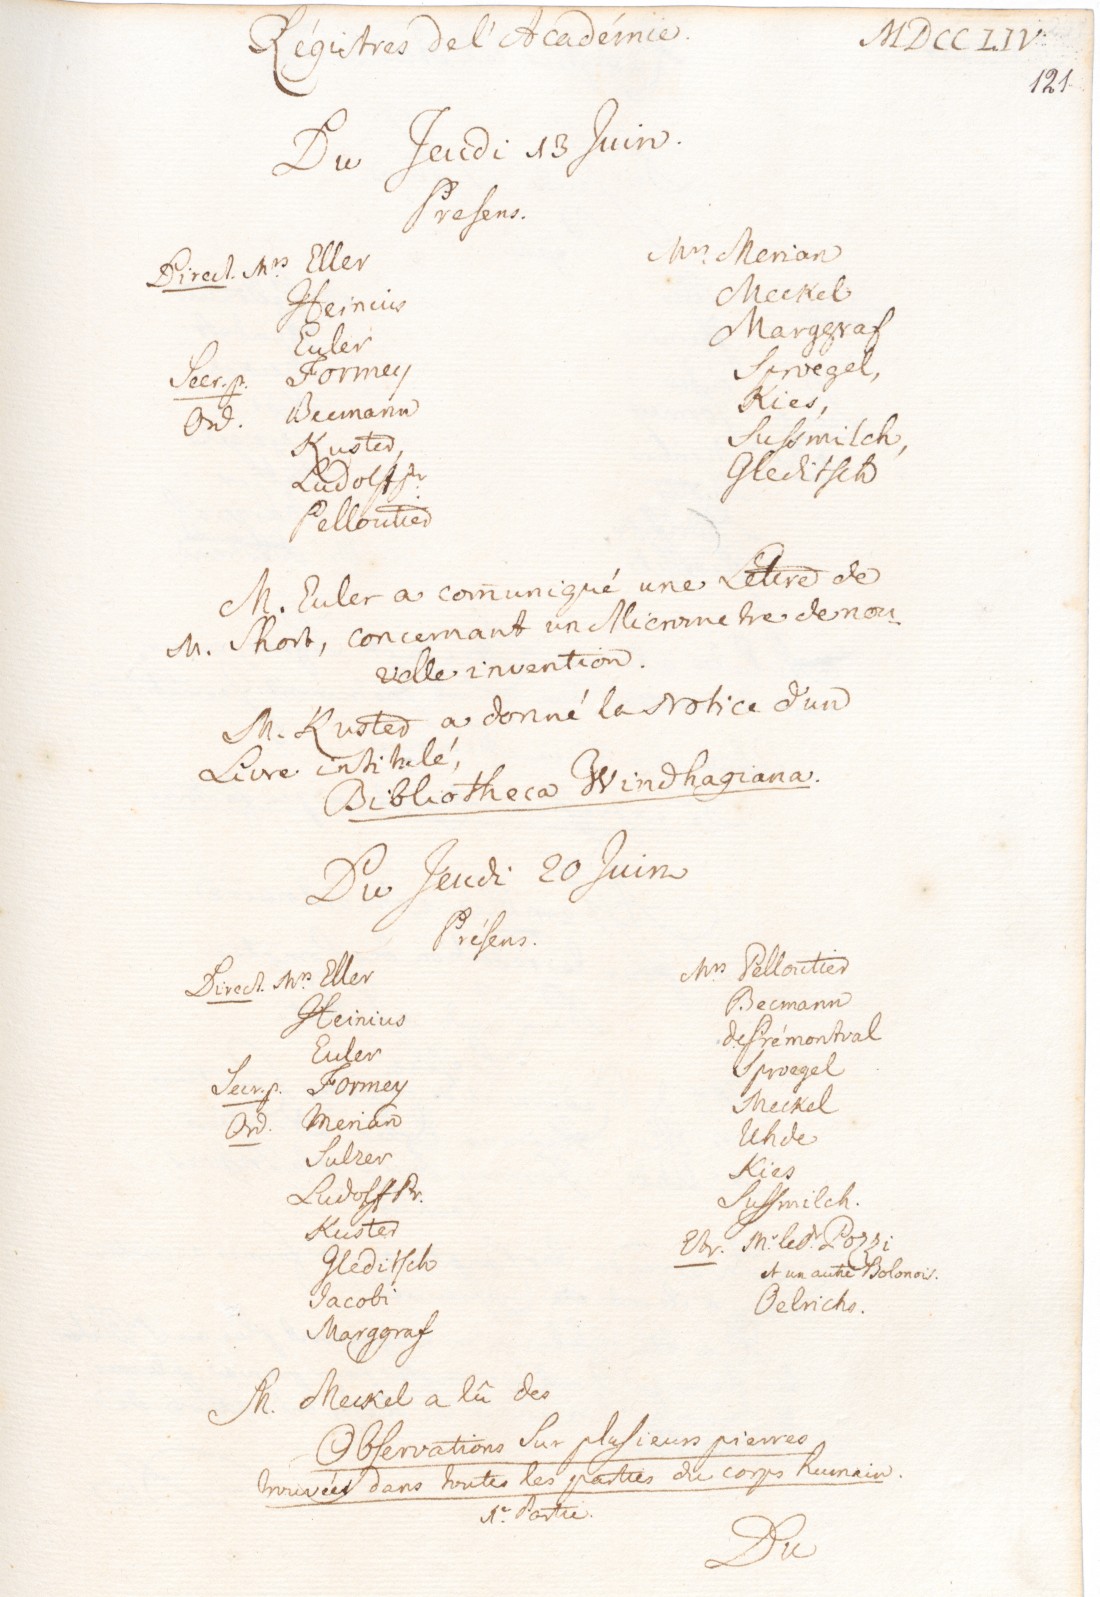 Régistres de l'Académie. MDCCLIV.
121
Du Jeudi 13 Juin.
Presens.
Direct. Mrs Eller
Heinius
Euler
Secr. p. Formey
Ord. Becmann
Kuster,
Ludolff pr.
Pelloutier
Mrs Merian
Meckel
Marggraf
Sproegel,
Kies,
Sussmilch,
Gleditsch
M. Euler a com̄uniqué une Lettre de
M. Short, concernant un Micrometre de nou
velle invention.
M. Kuster a donné la Notice d'un
Livre intitulé,
Bibliotheca Windhagiana.
Du Jeudi 20 Juin
Présens.
Direct. Mrs Eller
Heinius
Euler
Secr. p. Formey
Ord. Merian
Sulzer
Ludolff Pr.
Kuster
Gleditsch
Jacobi
Marggraf
Mrs Pelloutier
Becmann
de Prémontval
Sproegel
Meckel
Uhde
Kies
Sussmilch.
Etr. Mr. le Dr. Pozzi
et un autre Bolonois.
Oelrichs.
M. Meckel a lû des
Observations sur plusieurs pierres
trouvées dans toutes les parties du corps humain.
1e Partie.
Du